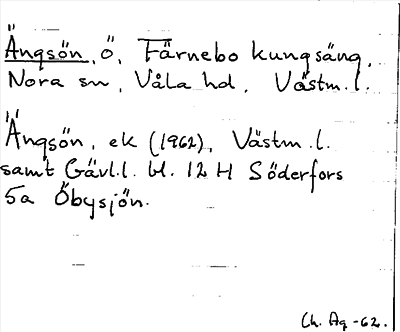 Ängsön, ö, Färnebo kungsäng,
Nora sn, Våla hd, Västm.l.
Ängsön, ek (1962), Västm.l.
samt Gävl.l. bl. 12 H Söderfors
5a Öbysjön.
Ch. Ag -62.